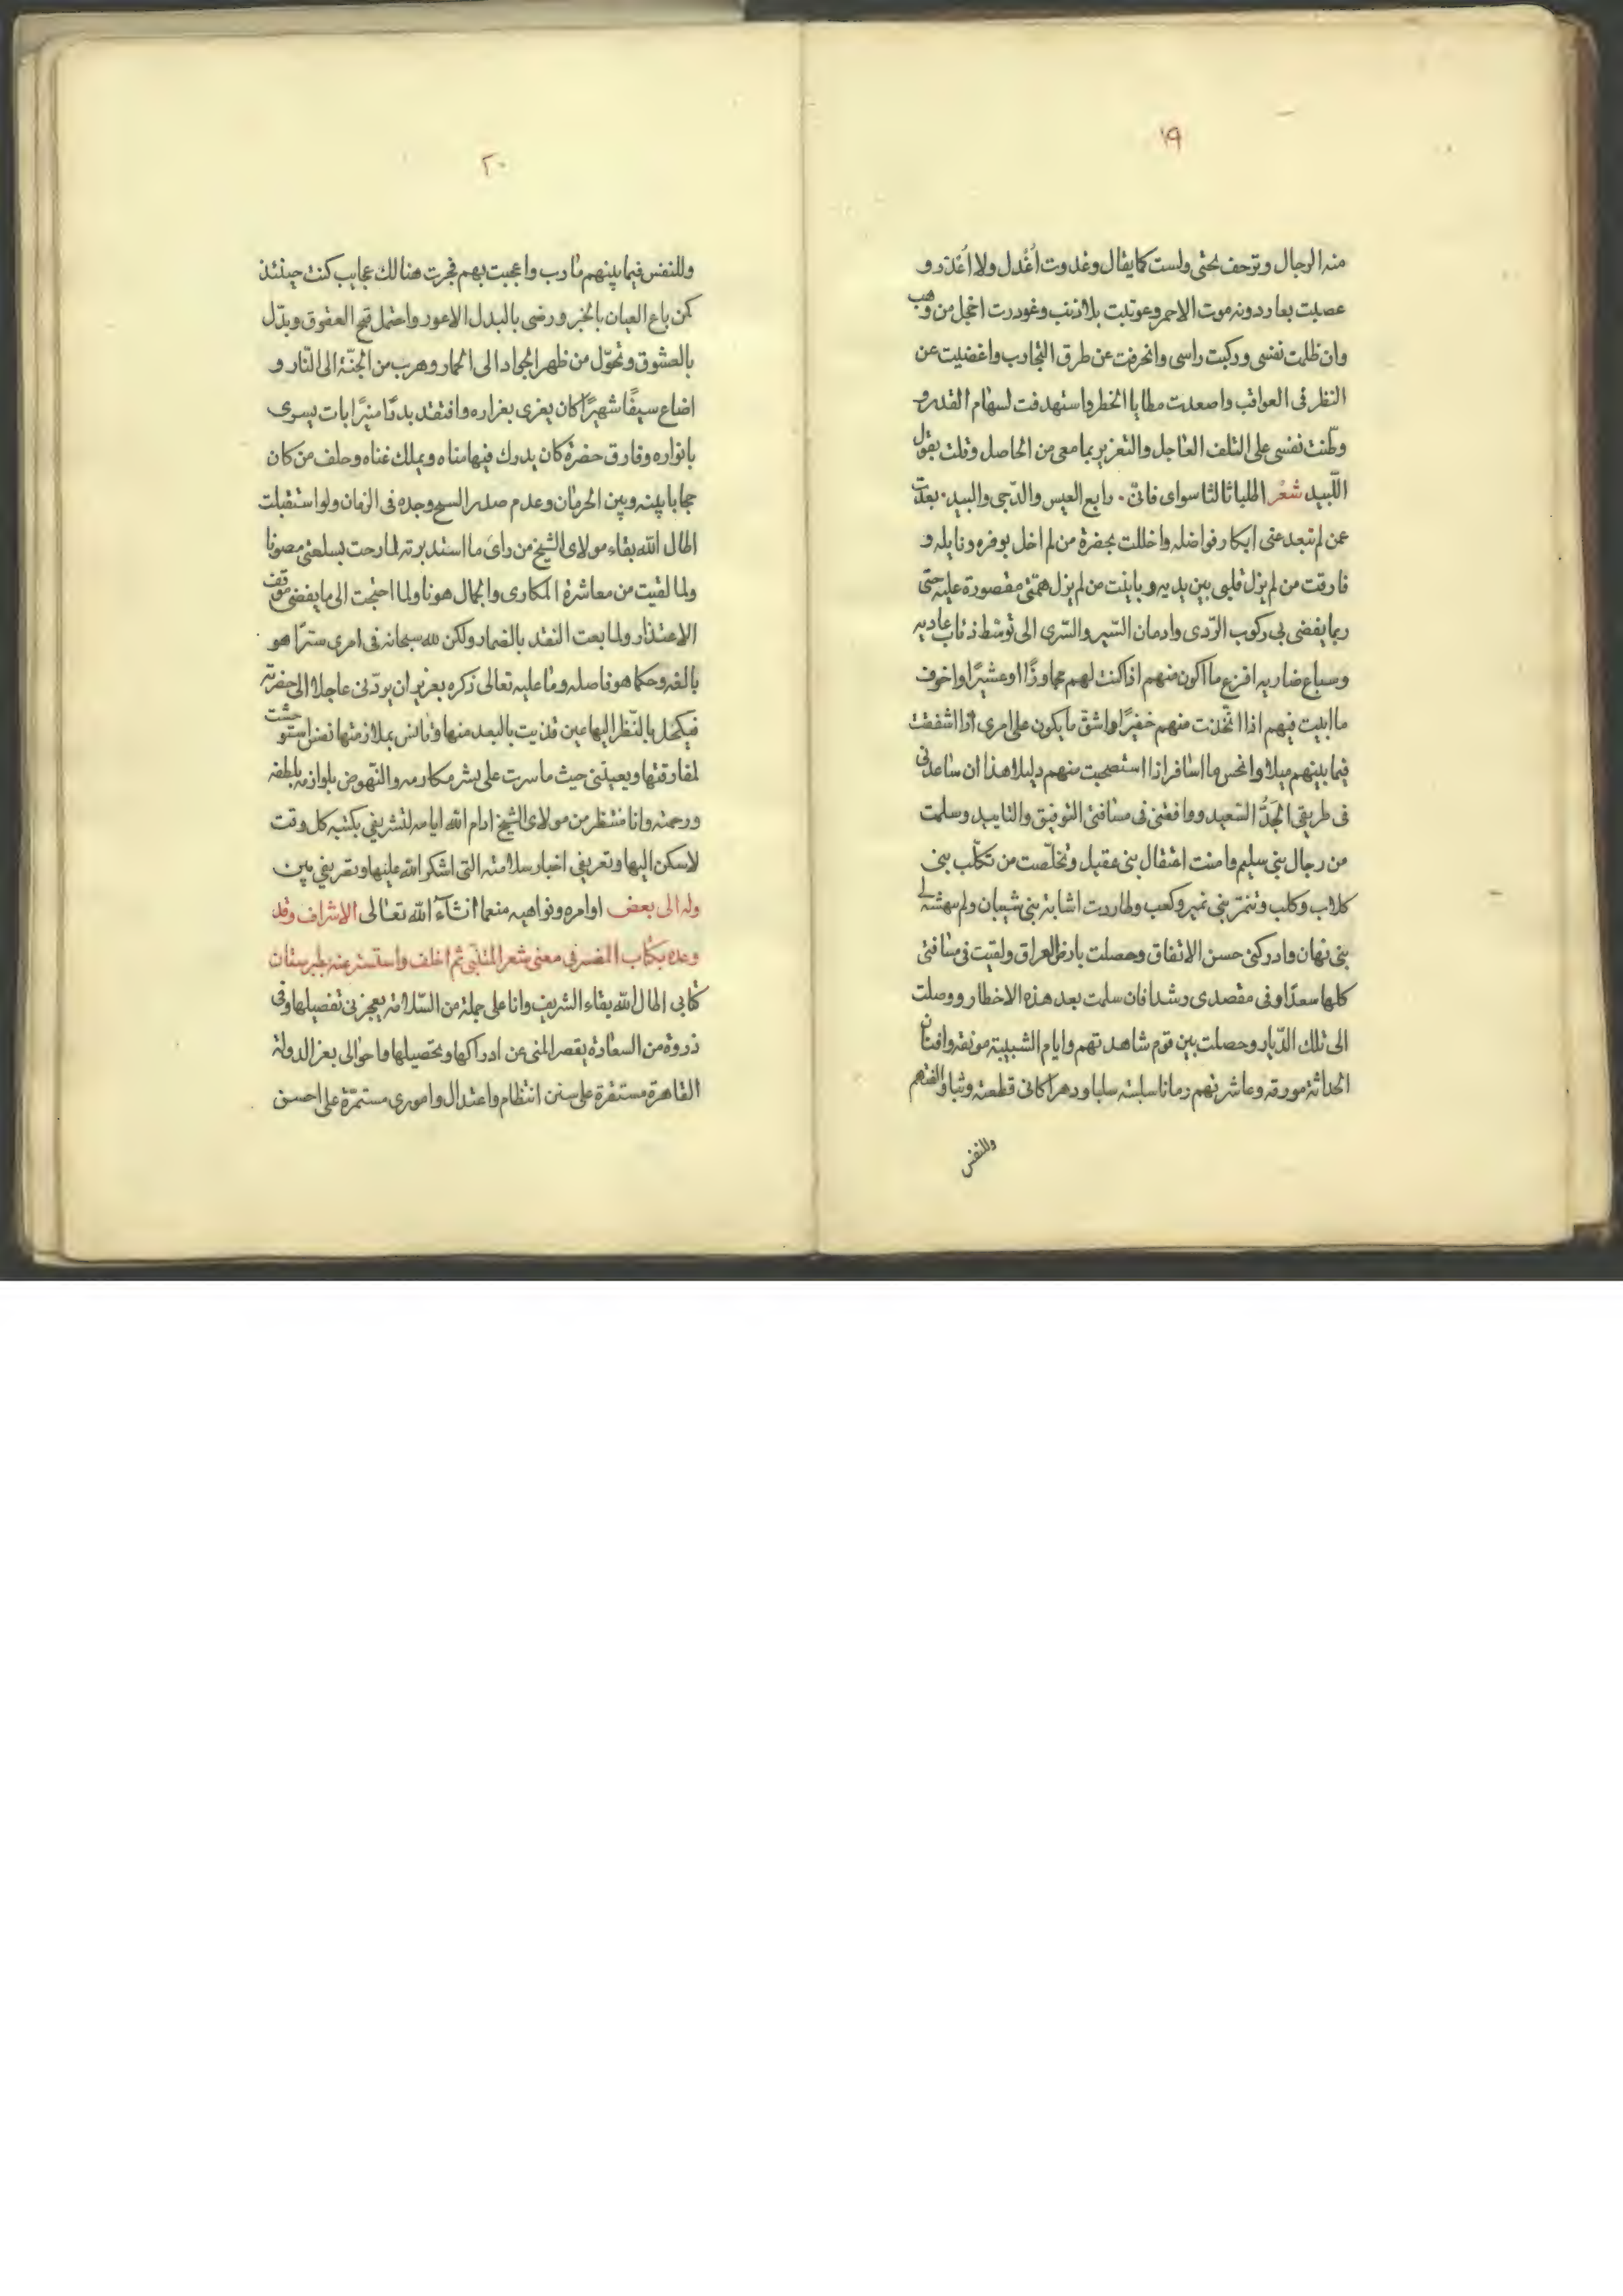 ١٩
منه الرجال وترحف بحتى ولست كما يقال وغدوت أعذل ولا اعذر و
عصبت بعار دونه موت الاحمر وعوتبت بلا ذنب وغودرت اخجل من وهب
وان ظلمت نفسى وركبت راسى وانحرفت عن طرق التجارب واغضيت عن
النظر فى العواقب واصعدت مطايا الخطر واستهدفت لسهام القدر و
وطنت نفسى على التلف العاجل والتغرير بما معى من الحاصل وقلت بقول
اللبيد شعر اطلبا ثالثا سواى فانى ٠ رابع العيس والدجى والبيد ٠ بعدت
عن لم تبعد عنى ابكار فواضله واخللت بحضرة من لم اخل بوفره ونايله و
فارقت من لم يزل قلبى بين يديه وباينت من لم يزل همتى مقصورة عليه حتى
ربما يفضى بى ركوب الردى وادمان السير والسرى الى توسط ذئاب عاديه
وسباع ضاريه افزع ما اكون منهم اذا كنت لهم مجاورًا او عشيرًا واخوف
ما ابيت فيهم اذا اتخذت منهم خفيرًا واشق ما يكون على امرى اذا اشفقت
فيما بينهم ميلا وانحس ما اسافر اذا استصحبت منهم دليلا هذا ان ساعدنى
فى طريقى الجدّ السعيد ووافقنى فى مسافتى التوفيق والتاييد وسلمت
من رجال بنى سليم وامنت اعتقال بنى عقيل وتخلصت من تكلب بنى
كلاب وكلب وتنمر بنى نمير وكعب وطاردت اشابة بنى شيبان ولم
بنى نهان وادركنى حسن الاتفاق وحصلت بارض العراق ولقيت فى مسافتى
كلها سعدا وفى مقصدى رشدا فان سلمت بعد هذه الاخطار ووصلت
الى تلك الديار وحصلت بين قوم شاهدتهم وايام الشبيبة مونقه وافنان
الحداثة مورقه وعاشرتهم زمانا سلبته سلبا ودهرا كانى قطعته وثبا والفتهم
وللنفس
٢٠
وللنفس فيما بينهم مارب واعجبت بهم فجرت هنالك عجايب كنت حينئذ
كمن باع العيان بالخبر ورضى بالبدل الاعور واحتمل قبح العقوق وبدّل
بالعشوق وتحوّل من ظهر الجواد الى الحمار وهرب من الجنّة الى النّار و
اضاع سيفًا شهيرًا كان يفرى بغراره وافتقد بدرًا منيرًا بات يسرى
بانواره وفارق حضرة كان يدرك فيها مناه ويملك غناه وحلف من كان
حجابا بينه وبين الحرمان وعدم صدر السمح وجده فى الزمان ولو استقبلت
اطال الله بقاء مولاى الشيخ من راى ما استدبرته لما رحت بسلعتى مصونا
ولما لقيت من معاشرة المكارى والجمال هونا ولما احتجت الى ما يفضى موقف
الاعتذار ولما بعت النقد بالضمار ولكن لله سبحانه فى امرى سترًا هو
بالغه وحكما هو فاصله وما عليه تعالى ذكره بعزيز ان يردّنى عاجلا الى حضرته
فيكحل بالنظر اليها عين قذيت بالبعد منها وتانس بملازمتها نفس استوحشت
لمفارقتها ويعيننى حيث ما سرت على نشر مكارمه والنهوض بلوازمه بلطفه
ورحمته وانا منتظر من مولاى الشيخ ادام الله ايامه لتشريفي بكتبه كل وقت
لاسكن اليها وتعريفي اخبار سلامته التى اشكر الله عليها وتصريفي بين
وله الى بعض اوامره ونواهيه منعما انشآء الله تعالى الاشراف وقد
وعده بكتاب المفسر فى معنى شعر المتنبى ثم اخلف واستتر عنه بطبرستان
كتابى اطال الله بقاء الشريف وانا على جملة من السّلامة يعجزنى تفصيلها وفى
ذروة من السعادة يقصر المنى عن ادراكها وتحصيلها واحوالى بعز الدولة
القاهرة مستقرة على سنن انتظام واعتدال وامورى مستمرّة على احسن